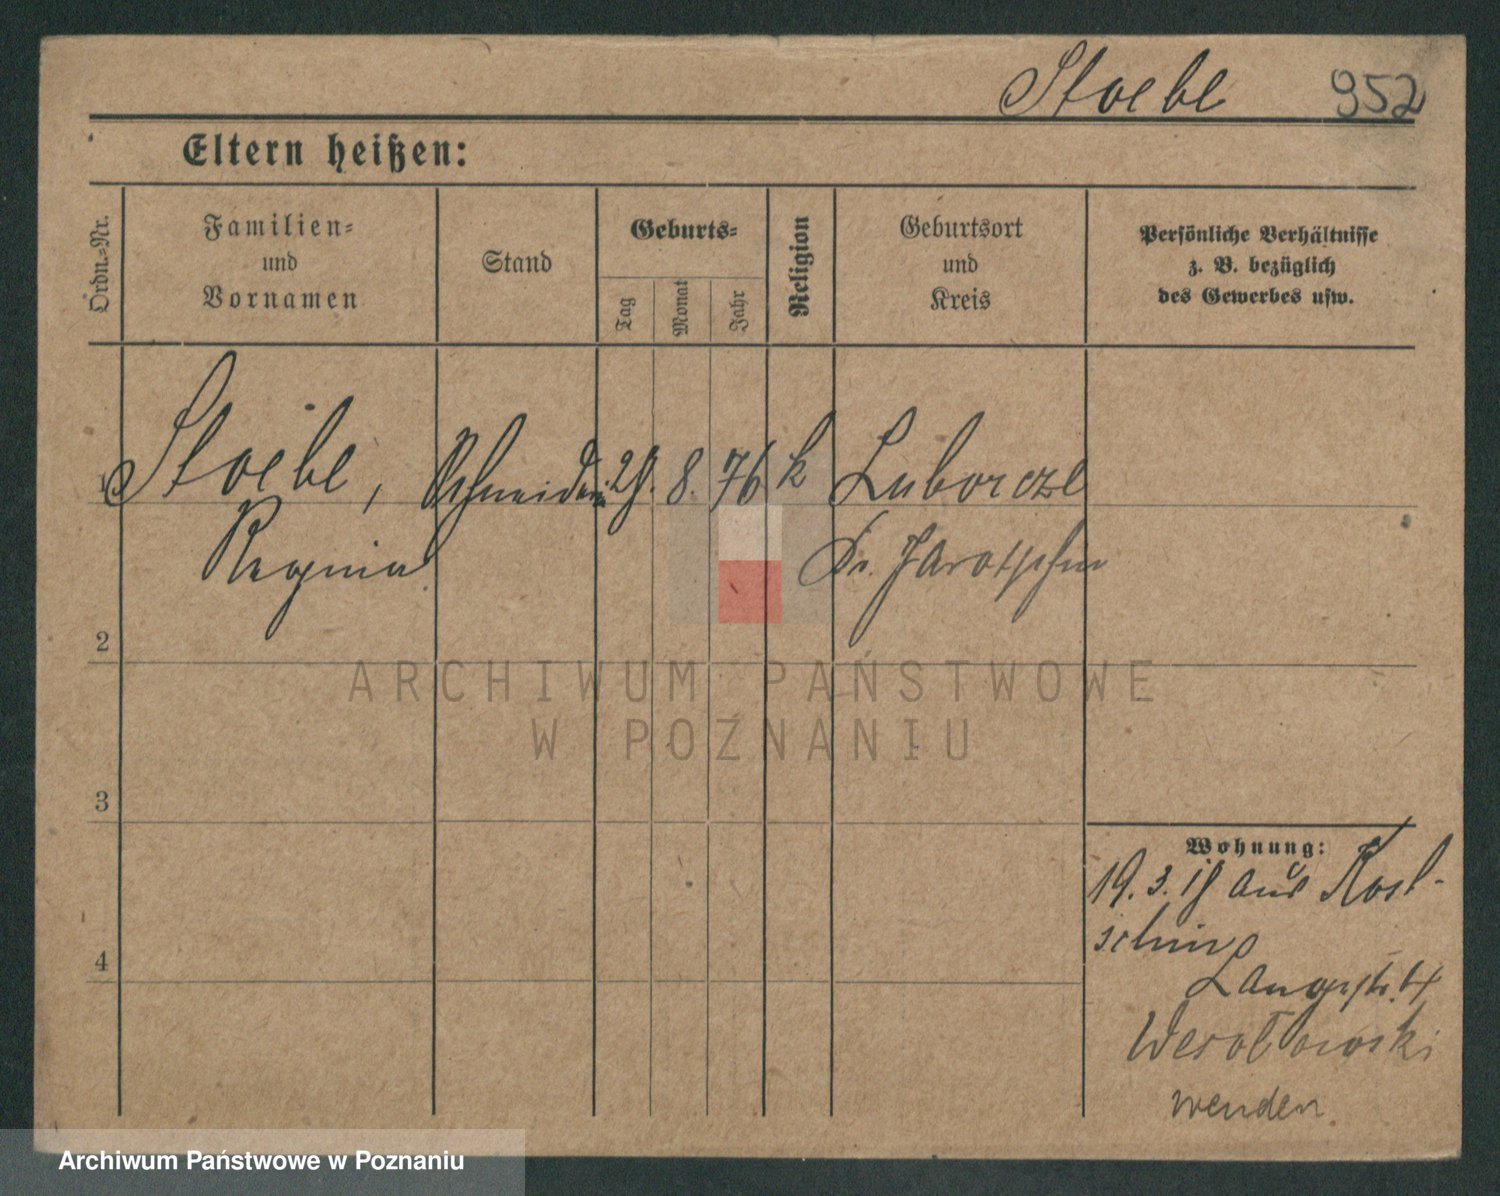 Stoebe 952
Eltern heißen:
Ordn.-Nr.
Familien-
und
Vornamen
Stand
Geburts-
Tag
Monat
Jahr
Religion
Geburtsort
und
Kreis
Persönliche Verhältnisse
z. B. bezüglich
des Gewerbes usw.
1
Stoebe, Schneiderin 29. 8. 76 k
Regina
Kr. Jarotschin
2
3
4
ARCHIWUM PAŃSTWOWE
W POZNANIU
Wohnung:
19. 3. 19 aus
Langestr. 4
wenden
Archiwum Państwowe w Poznaniu